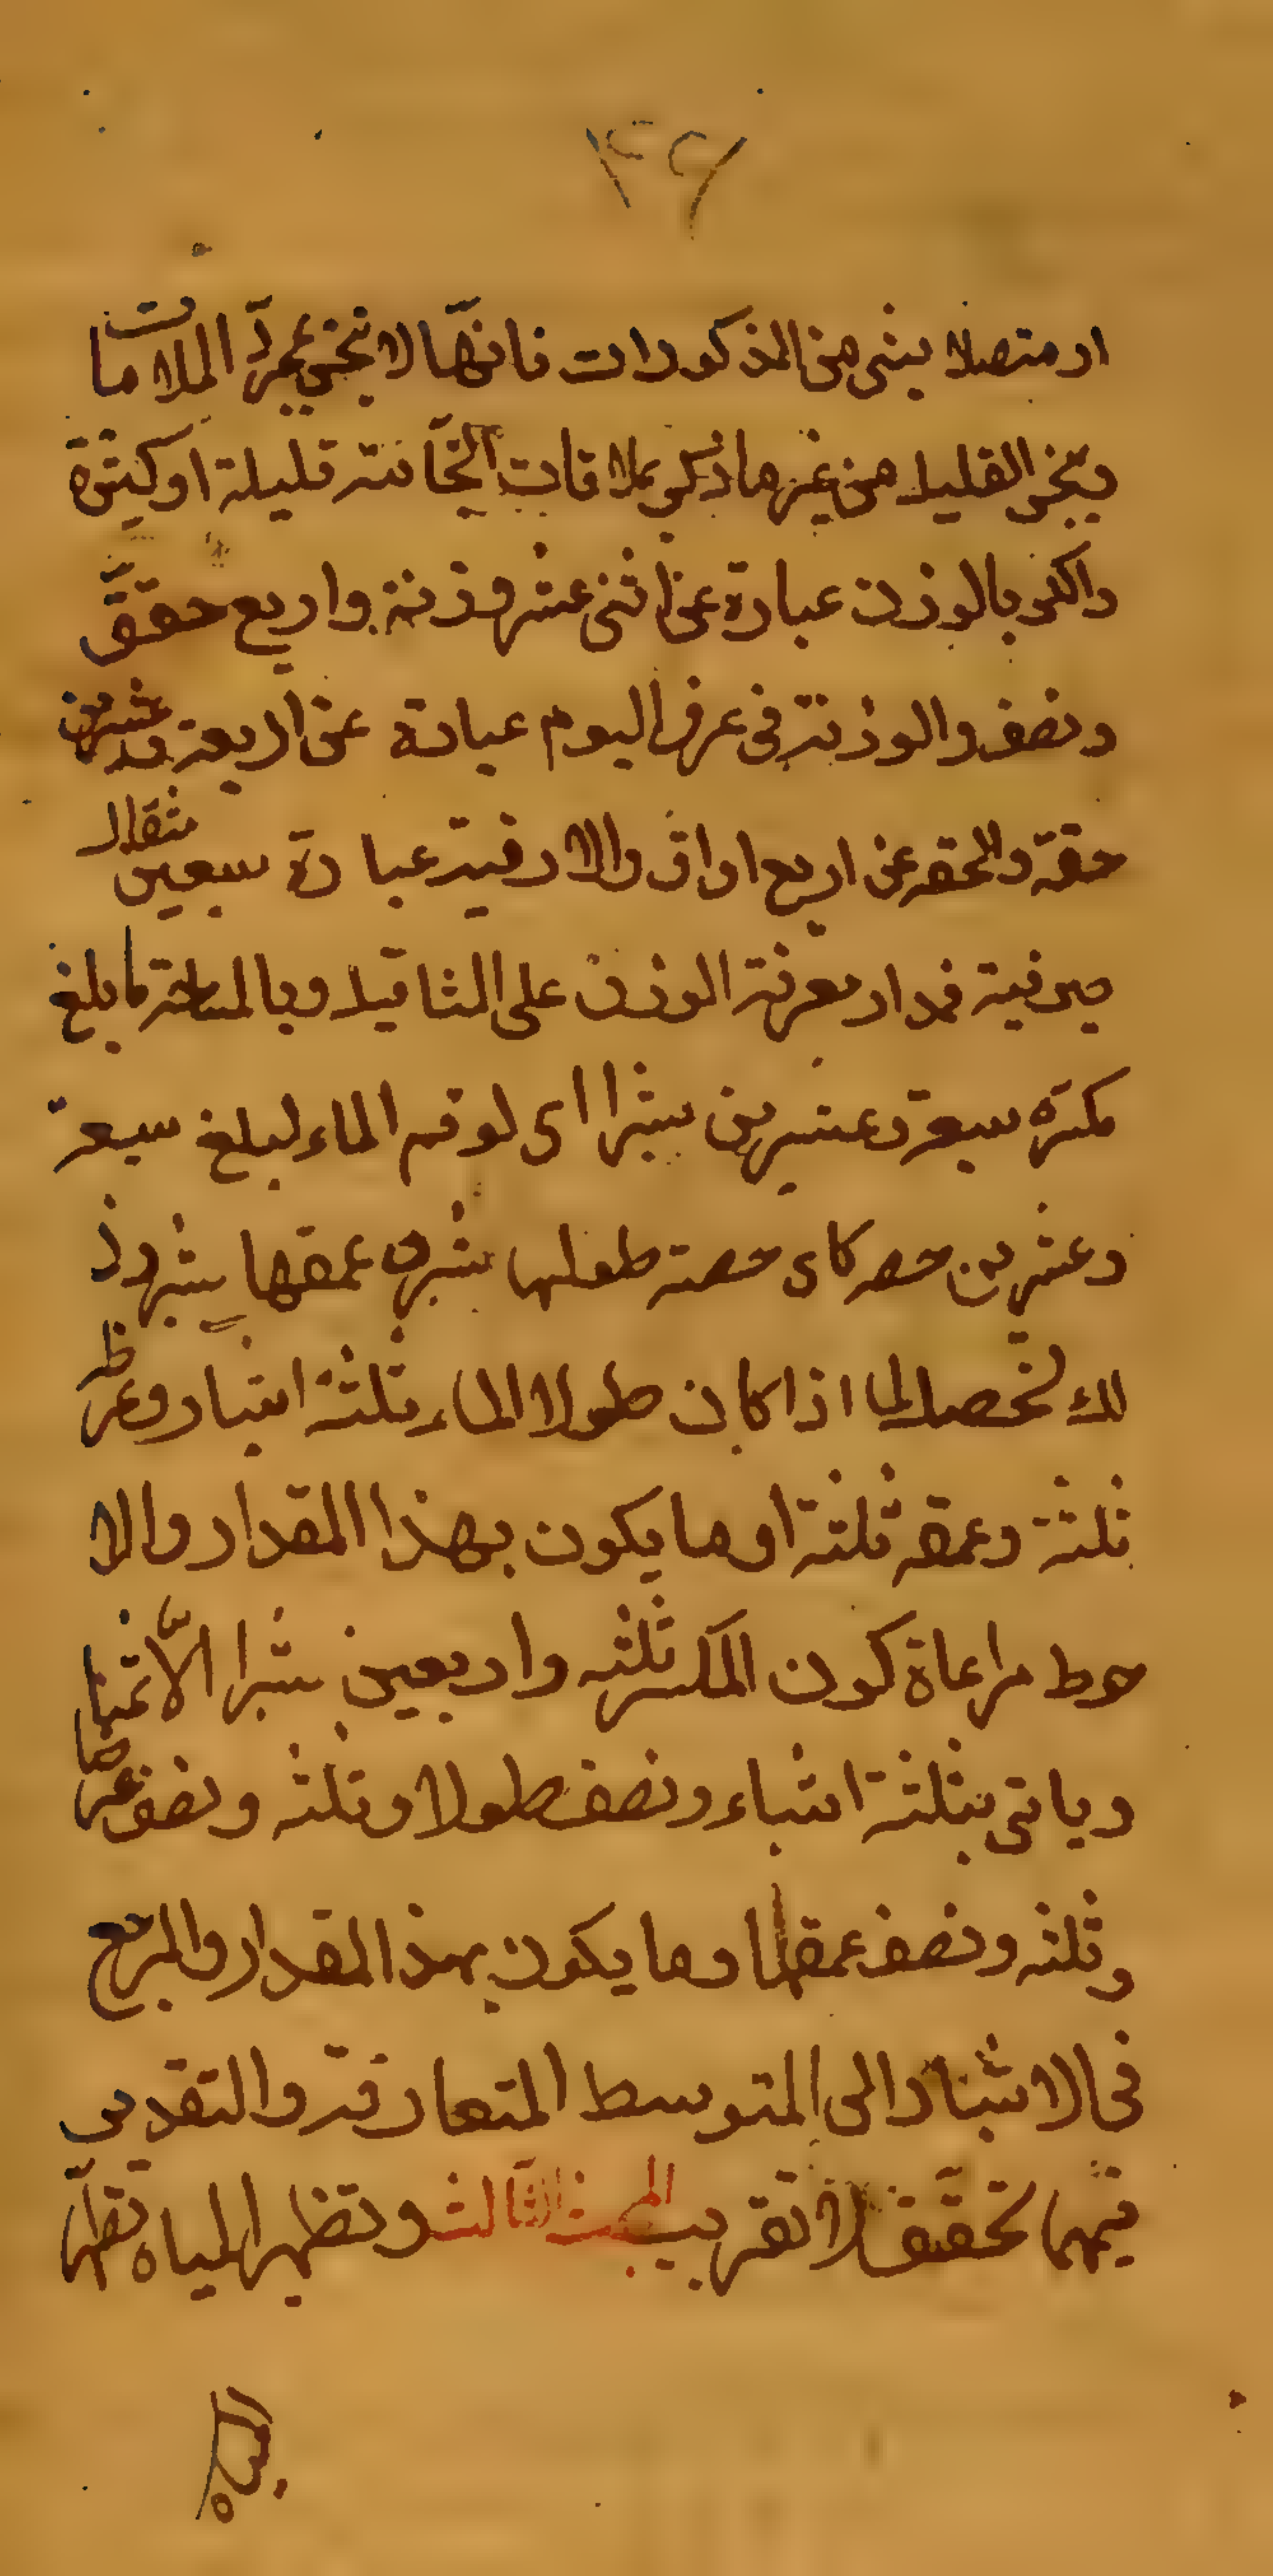 ٤٢
او متصلا بشی من المذکورات فانها لا تنجس بمجرد الملاقات
وینجس القلیل من غیر ما ذکر بملاقات النجاسة قلیلة او کثیرة
والکر بالوزن عبارة عن اثنی عشر وزنة واربع حقق
ونصف والوزنة فی عرف الیوم عبارة عن اربعة وعشرین
حقة والحقه عن اربع اواق والاوقیة عبارة سبعین مثقالا
صیرفیة فمدار معرفة الوزن علی المثاقیل وبالمساحة ما بلغ
مکسره سبعة وعشرین شبرا ای لو قسم الماء لبلغ سبعة
وعشرین حصه کل حصة طولها شبر وعمقها شبر وذ
لك یحصل اذا کان طول الماء ثلثة اشبار وعرضه
ثلثة وعمقه ثلثة او ما یکون بهذا المقدار والا
حوط مراعاة کون المکسر ثلثه واربعین شبرا الا ثمنا
ویاتی بثلثة اشبار ونصف طولا وثلثه ونصف عرضا
وثلثه ونصف عمقا او ما یکون بهذا المقدار والمرجع
فی الاشبار الی المتوسط المتعارفة والتقدیر
فیهما تحقیق لا تقریب المبحث الثالث وتطهر المیاه